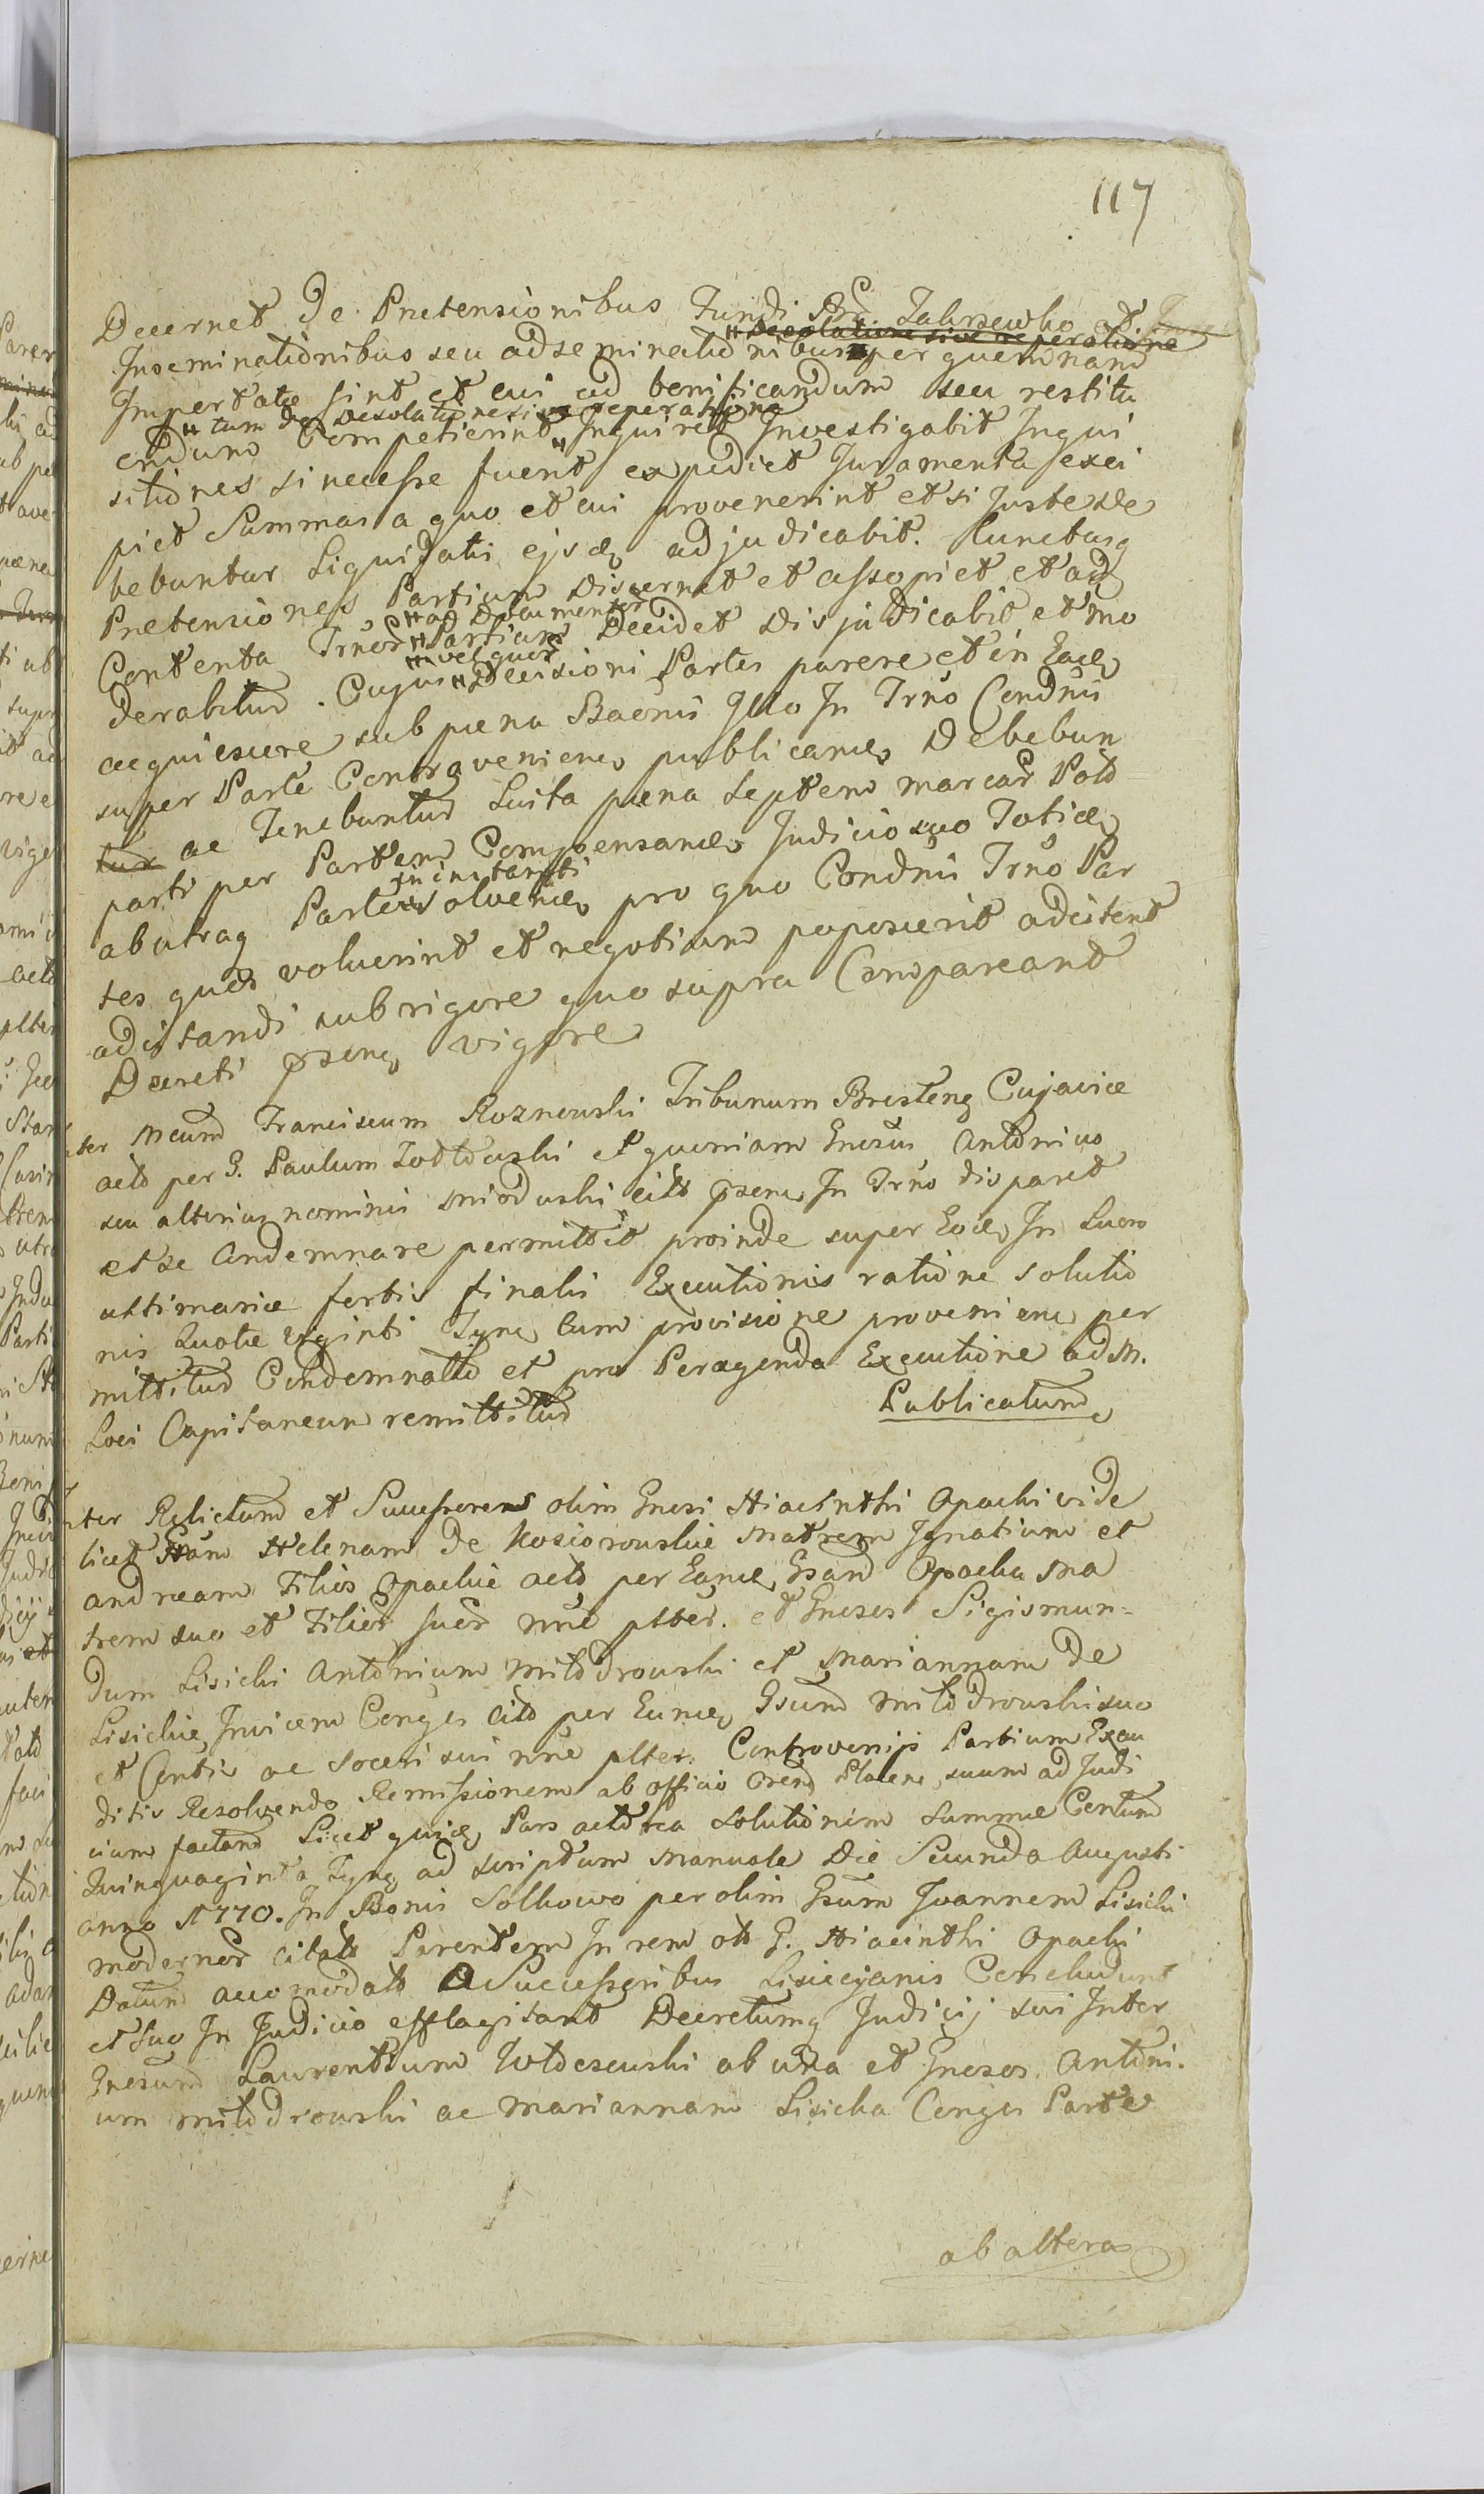 117
Decernet De Pretensionibus Fundi Zakrzewko et
Inseminationibus seu adseminationibus per quemnam
Desolatione sive reperatione
Impertatae sint et cui ad benificandum seu restitu
tum de desolatione sive reperatione
endum Competierint Inquiret Investigabit Inqui
sitiones si necesse fuerit expediet Juramenta exci
piet Summas a quo et cui provenerint et si Juste de
bebuntur Liquidati ejsdem adjudicabit. Cunctasq
Pretensiones Partium Discernet et assopiet et ad
ad Documentor
Contenta Trnor Partium Decidet Disjudicabit et mo
vel quor
derabitur. Cujus Decisioni Partes parere et in Eadem
acquiescere sub paena Baonis Illo In Trno Condnii
super Parte Contraveniene publicanda Debebun
tur ac Tenebuntur Luita paena Septem marcar Pold
parti per Partem Compensanda Judicio suo Toties
in instanti
ab utraq Parte solvenda pro quo Condnii Trno Par
tes quos voluerint et negotium poposcerit adcitent
adcitandi sub rigore quo supra Compareant
Decreti psens vigore
ter Mcum Franciscum Roznowski Tribunum Bresteng Cujaviae
actd per G. Paulum et quoniam Gnosus Antonius
seu alterius nominis Mioduski citt psens In Trno disparet
et se Condemnare permittit proinde super Eodem In Lucro
ultimariae sortis finalis Executionis ratione solutio
nis Quotae Viginti Tync Cum provisione proveniens per
mittitur Condemnattd et pro Peragenda Executione ad M.
Loci Capitaneum remittitur Publicatum
ter Relictam et Successores olim Gnosi Hiacinthi Opacki vide
licet Helenam de Kosiorowskie Matrem Ignatium et
Andream Filios Opackie actd per Eandem Gsam Opacka Ma
trem suo et Filior suor nne plter. et Gnosos Sigismun=
dum Lisicki Antonium Miłodrowski et Mariannam De
Lisickie Invicem Conges citd per Eundem Gsum Miłodrowski suo
et Contis ac Soceri sui nne plter. Controversijs Partium Exau
ditis Resolvendo Remissionem ab officio Plocens suum ad Judi
cium factam Licet quidem Pars actorea solutionem summae Centum
Quinquaginta Tync ad scriptum Manuale Die Secunda Augusti
anno 1770. In Bonis Sołkowo per olim Gsum Joannem Lisicki
modernor citatt Parentem In rem olt G. Hiacinthi Opacki
Datum accomodatt A Successoribus Lisiccyanis Concludunt
et suo In Judicio efflagitant Decretumq Judicij sui Inter
Gnosum Laurentium ab una et Gnosos Antoni.
um Miłodrowski ac Mariannam Lisicka Conges Parte
ab altera